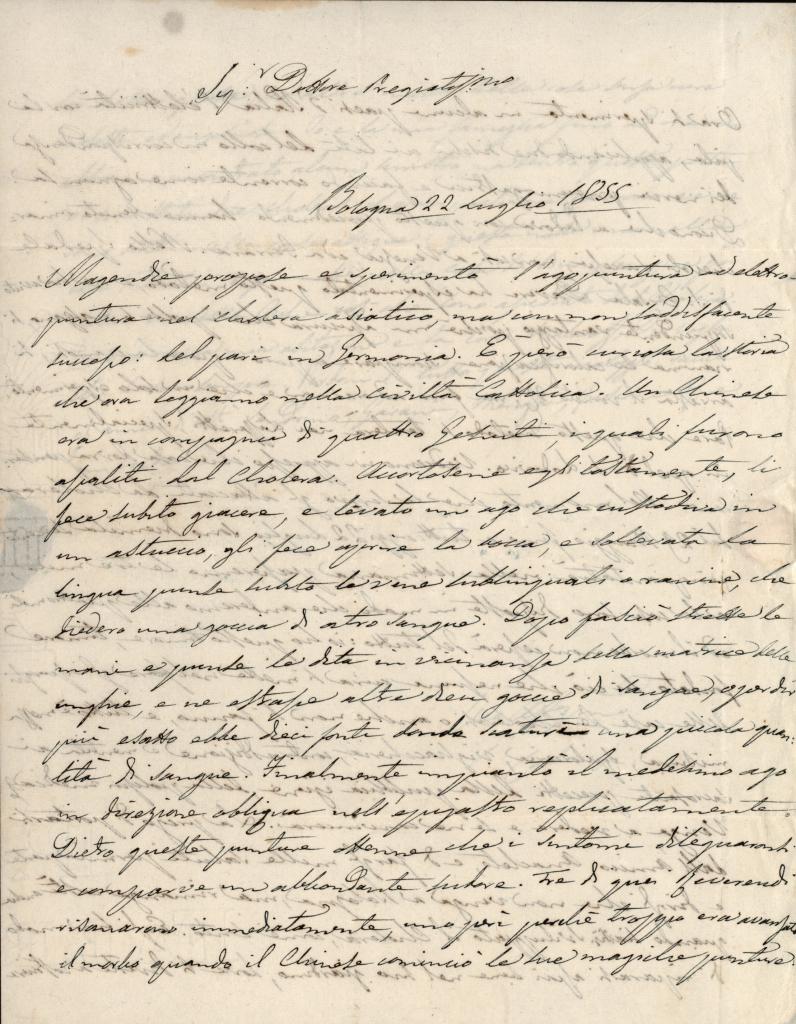 Sig.r Dottore Pregiatis.mo
Bologna 22 Luglio 1855
Magendie propose e sperimentò l'agopuntura ed elettro
puntura nel cholera asiatico, ma con non soddisfacente
successo: del pari in Germania. È però curiosa la storia
che ora leggiamo nella Civiltà Cattolica. Un Chinese
era in compagnia di quattro Gesuiti, i quali furono
assaliti dal Cholera. Accortosene egli tostamente, li
fece subito giacere, e levato un'ago che custodiva in
un astuccio, gli fece aprire la bocca, e sollevata la
lingua punse subito le vene sublinguali o ranine, che
diedero una goccia di atro sangue. Dopo fasciò strette le
mani e punse le dita in vicinanza della matrice delle
unghie, e ne estrasse altre dieci goccie di sangue, o per dir
più esatto ebbe dieci fonti donde scaturìa una piccola quan-
tità di sangue. Finalmente impiantò il medesimo ago
in direzione obliqua nell'epigastro replicatamente.
Dietro queste punture ottenne che i sintomi dileguaronsi
e comparve un abbondante sudore. Tre di quei Reverendi
risanarono immediatamente, uno perì perchè troppo era avanzato
il morbo quando il Chinese cominciò le sue magiche punture.